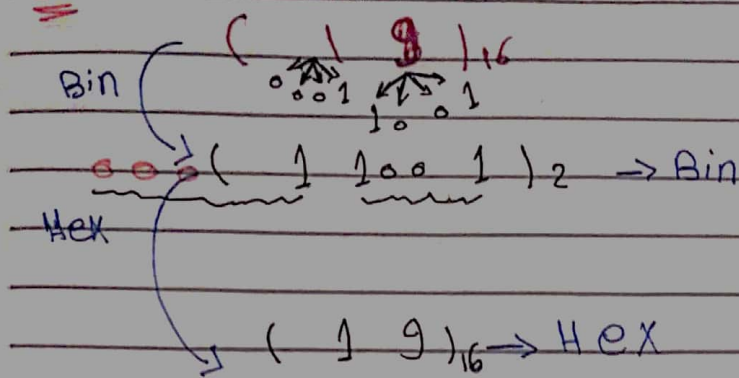 ( 1 9 )16
Bin
0 0 0 1 1 0 0 1
0 0 0 ( 1 1 0 0 1 )2 → Bin
Hex
( 1 9 )16 → Hex